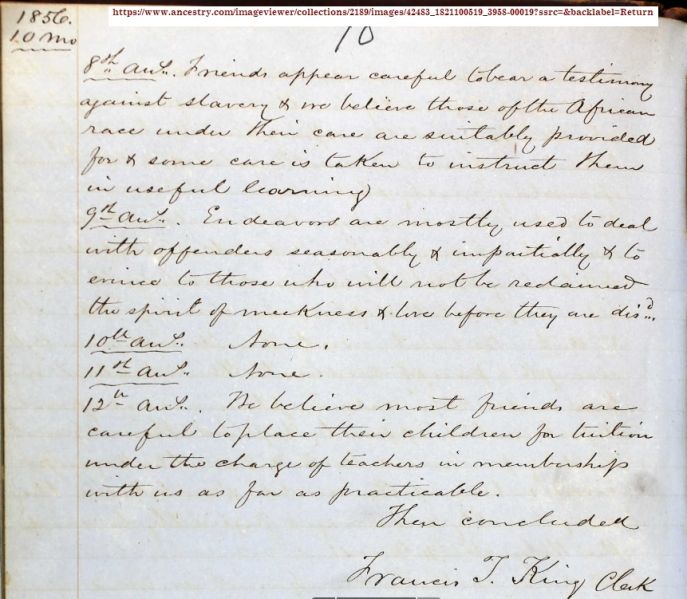 https://www.ancestry.com/imageviewer/collections/2189/images/42483_1821100519_3958-00019?ssrc=&backlabel=Return
1856.
10 mo
10
8th ans. Friends appear careful to bear a testimony
against slavery & we believe those of the African
race under their care are suitably provided
for & some care is taken to instruct them
in useful learning
9th ans. Endeavors are mostly used to deal
with offenders seasonably & impartially & to
evince to those who will not be reclaimed
the spirit of meekness & love before they are disd.
10th ans. None.
11th ans. None.
12th ans. We believe most friends are
careful to place their children for tuition
under the charge of teachers in membership
with us as far as practicable.
Then concluded
Francis T. King Clerk